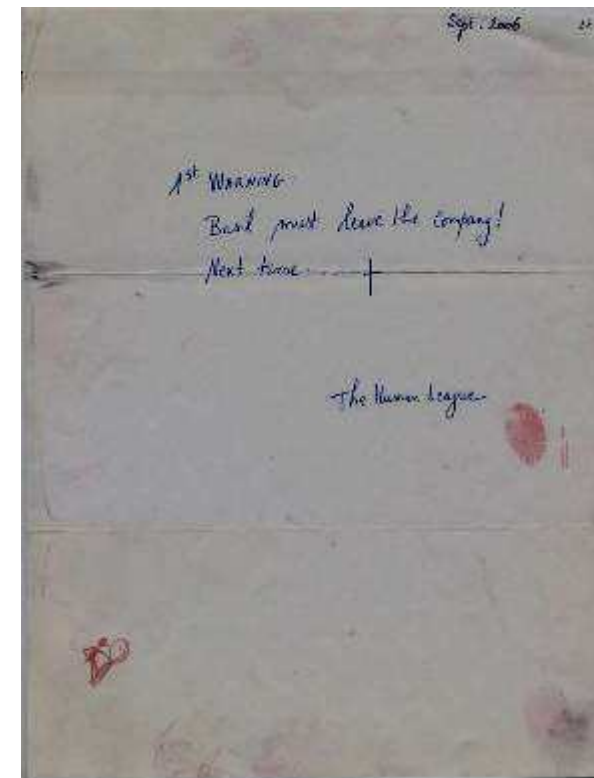 Sept. 2006
1st WARNING
Basil must leave the company!
Next time......
The Human League